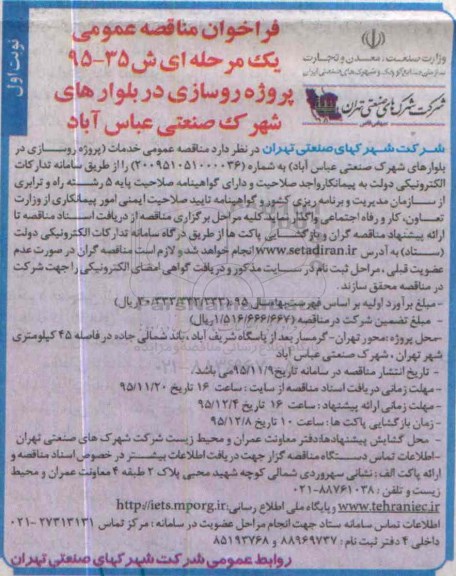 نوبت اول
فراخوان مناقصه عمومی
یک مرحله ای ش ۳۵-۹۵
پروژه روسازی در بلوار های
شهرک صنعتی عباس آباد
وزارت صنعت، معدن و تجارت
سازمان صنایع کوچک و شهرکهای صنعتی ایران
شرکت شهرک های صنعتی تهران
شرکت شهرکهای صنعتی تهران در نظر دارد مناقصه عمومی خدمات (پروژه روسازی در
بلوارهای شهرک صنعتی عباس آباد) به شماره (۲۰۰۹۵۱۰۵۱۰۰۰۰۳۶) را از طریق سامانه تدارکات
الکترونیکی دولت به پیمانکارواجد صلاحیت و دارای گواهینامه صلاحیت پایه ۵ رشته راه و ترابری
از سازمان مدیریت و برنامه ریزی کشور و گواهینامه تایید صلاحیت ایمنی امور پیمانکاری از وزارت
تعاون، کار و رفاه اجتماعی واگذار نماید کلیه مراحل برگزاری مناقصه از دریافت اسناد مناقصه تا
ارائه پیشنهاد مناقصه گران و بازگشایی پاکت ها از طریق درگاه سامانه تدارکات الکترونیکی دولت
(ستاد) به آدرس www.setadiran.ir انجام خواهد شد و لازم است مناقصه گران در صورت عدم
عضویت قبلی ، مراحل ثبت نام در سایت مذکور و دریافت گواهی امضای الکترونیکی را جهت شرکت
در مناقصه محقق سازند.
-مبلغ برآورد اولیه بر اساس فهرست بهاء سال ۹۵ (۳۰/۳۳۳/۳۳۳/۳۳۳ ریال)
- مبلغ تضمین شرکت در مناقصه (۱/۵۱۶/۶۶۶/۶۶۷ریال)
-محل پروژه :محور تهران- گرمسار بعد از پاسگاه شریف آباد ، باند شمالی جاده در فاصله ۴۵ کیلومتری
شهر تهران ، شهرک صنعتی عباس آباد
- تاریخ انتشار مناقصه در سامانه تاریخ ۹۵/۱۱/۹می باشد.
-مهلت زمانی دریافت اسناد مناقصه از سایت : ساعت ۱۶ تاریخ ۹۵/۱۱/۲۰
-مهلت زمانی ارائه پیشنهاد : ساعت ۱۶ تاریخ ۹۵/۱۲/۴
-زمان بازگشایی پاکت ها : ساعت ۱۰ تاریخ ۹۵/۱۲/۸
- محل گشایش پیشنهادها:دفتر معاونت عمران و محیط زیست شرکت شهرک های صنعتی تهران
-اطلاعات تماس دستگاه مناقصه گزار جهت دریافت اطلاعات بیشتر در خصوص اسناد مناقصه و
ارائه پاکت الف : نشانی سهروردی شمالی کوچه شهید محبی پلاک ۲ طبقه ۴ معاونت عمران و محیط
زیست و تلفن : ۸۸۷۶۱۰۳۸-۰۲۱
www.tehraniec.ir و پایگاه ملی اطلاع رسانی:http://iets.mporg.ir
اطلاعات تماس سامانه ستاد جهت انجام مراحل عضویت در سامانه : مرکز تماس ۲۷۳۱۳۱۳۱-۰۲۱
داخلی ۴ دفتر ثبت نام : ۸۸۹۶۹۷۳۷ و ۸۵۱۹۳۷۶۸
روابط عمومی شرکت شهرکهای صنعتی تهران